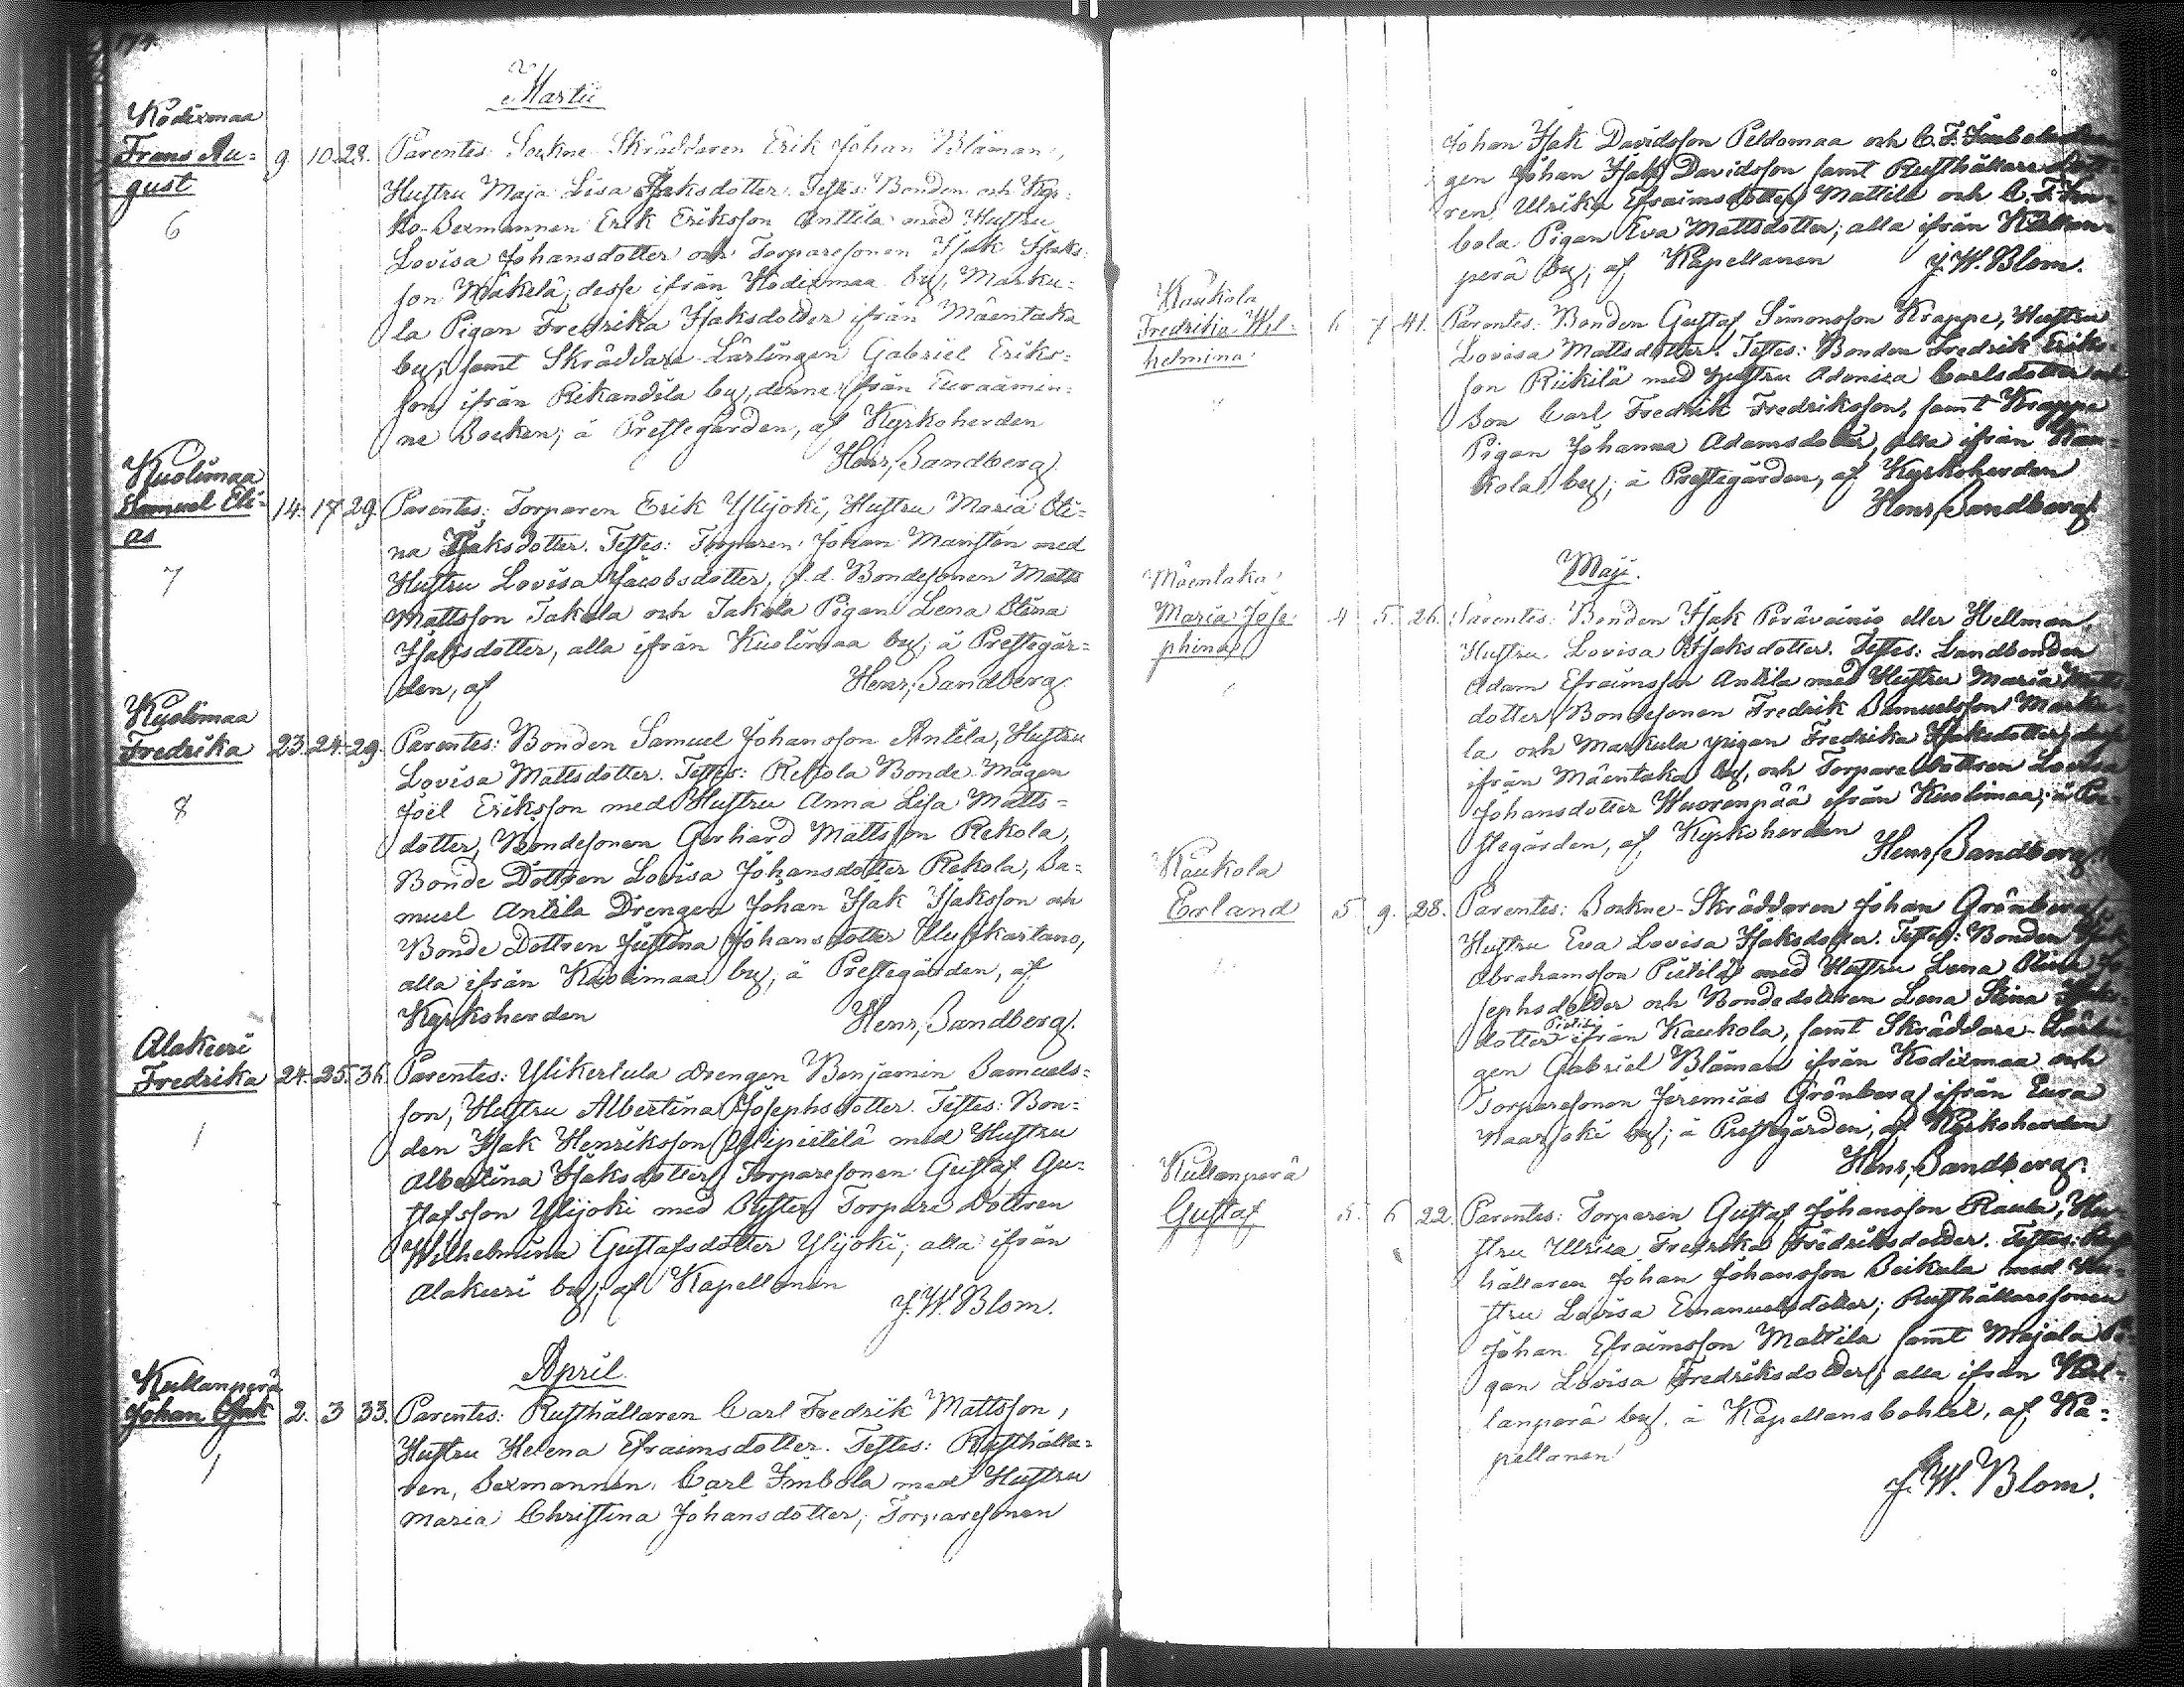 174.
Martii
Kodixmaa
Frans Au=
gust
6
9. 10. 28. Parentes: Sockne-Skräddaren Erik Johan Blåman,
Hustru Maja Lisa Isaksdotter. Testes: Bonden och Kyr=
ko-Sexmannen Erik Eriksson Anttila med Hustru
Lovisa Johansdotter och Torparesonen Isak Isaks=
son Mäkelä, desse ifrån Kodixmaa by, Marku=
la Pigan Fredrika Isaksdotter ifrån Mäentaka
by, samt Skräddare-Lärlingen Gabriel Eriks=
son ifrån Rikandila by, denne ifrån Euraåmin=
ne Socken; å Prestegården, af Kyrkoherden
Henr. Sandberg.
Kuolimaa
Samuel Eli=
as
7
14. 17. 29. Parentes: Torparen Erik Ylijoki, Hustru Maria Sti=
na Isaksdotter. Testes: Torparen Johan Mansten med
Hustru Lovisa Jacobsdotter, f.d. Bondesonen Matts
Mattsson Takala och Takala Pigan Lena Stina
Isaksdotter, alla ifrån Kuolimaa by; å Prestegår=
den, af Henr. Sandberg.
Kuolimaa
Fredrika
8
23. 24. 29. Parentes: Bonden Samuel Johansson Antila, Hustru
Lovisa Mattsdotter. Testes: Rekola Bonde-Mågen
Joël Eriksson med Hustru Anna Lisa Matts=
dotter, Bondesonen Gerhard Mattsson Rekola,
Bonde Dottren Lovisa Johansdotter Rekola, Sa=
muel Antila Drengen Johan Isak Isaksson och
Bonde Dottren Justina Johansdotter Uusikartano,
alla ifrån Kuolimaa by; å Prestegården, af
Kyrkoherden Henr. Sandberg.
Alakeeri
Fredrika
1
24. 25. 36. Parentes: Ylikertula Drengen Benjamin Samuels=
son, Hustru Albertina Josephsdotter. Testes: Bon=
den Isak Henriksson Ylipietilä med Hustru
Albertina Isaksdotter, Torparesonen Gustaf Gu=
stafsson Ylijoki med Syster Torpare Dottren
Wilhelmina Gustafsdotter Ylijoki; alla ifrån
Alakeeri by; af Kapellanen
J. W. Blom.
April.
Kullanperä
Johan Isak
1
2. 3 33. Parentes: Rusthållaren Carl Fredrik Mattsson,
Hustru Helena Efraimsdotter. Testes: Rusthålla=
ren, Sexmannen Carl Imbola med Hustru
Maria Christina Johansdotter; Torparesonen
Johan Isak Davidsson Peldomaa och C. F.
gen Johan Isak Davidsson samt Rusthållare
ren Ulrika Efraimsdotter Mattila och C. F. Im=
bola Pigan Eva Mattsdotter; alla ifrån Kullan=
perä by; af Kapellanen J. W. Blom.
Kaukola
Fredrika Wil=
helmina
6 7 41. Parentes: Bonden Gustaf Simonsson Krappe, Hustru
Lovisa Mattsdotter. Testes: Bonden Fredrik Eriks=
son Riikilä med Hustru Adonica Carlsdotter och
Son Carl Fredrik Fredriksson, samt Krappe
Pigan Johanna Adamsdotter, alla ifrån Kau=
kola by; å Prestegården, af Kyrkoherden
Henr. Sandberg.
Maji.
Mäentaka
Maria Jose=
phina
4 5. 26. Parentes: Bonden Isak Perävainio eller Hellman,
Hustru Lovisa Isaksdotter. Testes: Landbonden
Adam Efraimsson Antila med Hustru Maria
dotter, Bondesonen Fredrik Samuelsson Marku=
la och Markula pigan Fredrika Isaksdotter, desse
ifrån Mäentaka by, och Torpare Dottren Lovisa
Johansdotter Wuorenpää ifrån Kuolimaa; å Pre=
stegården, af Kyrkoherden
Henr. Sandberg.
Kaukola
Erland
5 9. 28. Parentes: Sockne-Skräddaren Johan Grönberg,
Hustru Eva Lovisa Isaksdotter. Testes: Bonden Isak
Abrahamsson Pietilä med Hustru Lena Stina Jo=
sephsdotter och Bondedottren Lena Stina Isaks=
dotter Pietilä ifrån Kaukola, samt Skräddare-Lärlin=
gen Gabriel Blåman ifrån Kodixmaa och
Torparesonen Jeremias Grönberg ifrån Eura
Naarjoki by; å Prestegården, af Kyrkoherden
Henr. Sandberg.
Kullanperä
Gustaf
5. 6 22. Parentes: Torparen Gustaf Johansson Rauta, Hu=
stru Ulrica Fredrika Fredriksdotter. Testes: Rust=
hållaren Johan Johansson Seikula med Hu=
stru Lovisa Emanuelsdotter; Rusthållaresonen
Johan Efraimsson Mattila samt Majala Pi=
gan Lovisa Fredriksdotter; alla ifrån Kul=
lanperä by. å Kapellansbohlet, af Ka=
pellanen
J. W. Blom.